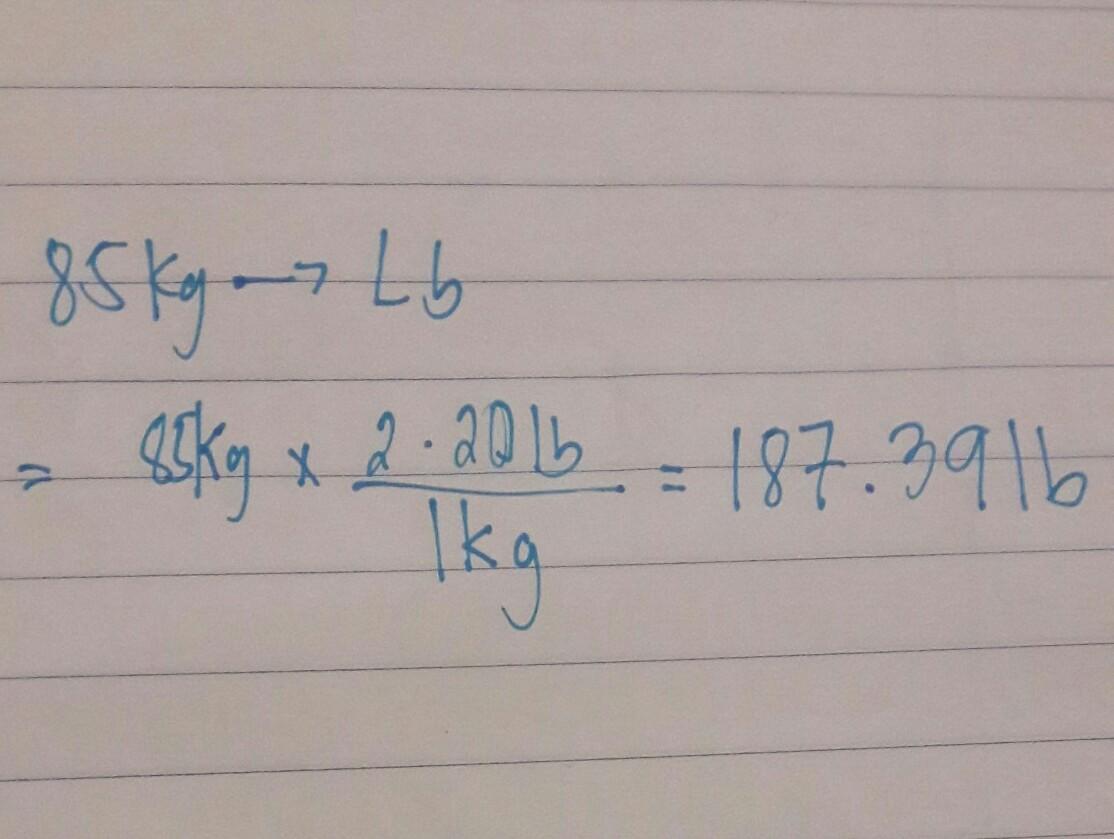 85 kg → Lb
= 85kg x 2.20 lb / 1kg = 187.39 lb